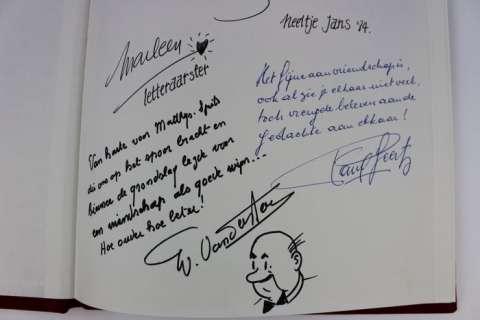 neeltje Jans '74.
Marleen
letteraarster
Het fijne aan vriendschap is,
ook al zie je elkaar niet veel,
toch vreugde beleven aan de
gedachte aan elkaar!
Van harte van Matthys. Spits
die ons op het spoor bracht en
hiermee de grondslag legde voor
een vriendschap als goede wijn...
Hoe ouder hoe beter!
W. Vandersteen